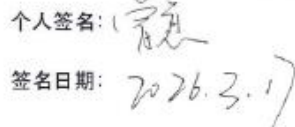 个人签名:
签名日期: 2026.3.17